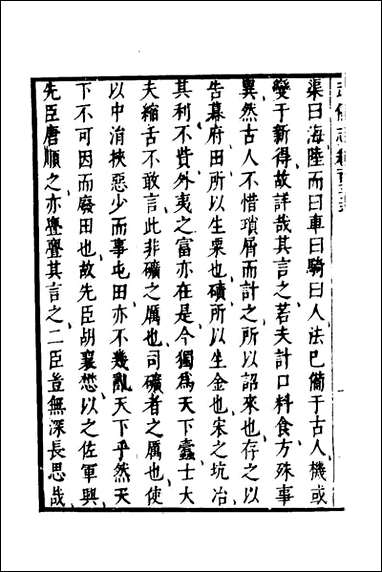 渠曰海陸而曰車曰騎曰人法已簡于古人機或
變于新得故詳哉其言之若夫計口料食方殊事
異然古人不惜瑣屑而計之所以詔來也存之以
告幕府田所以生粟也礦所以生金也宋之坑冶
其利不貲外夷之富亦在是今獨為天下蠹士大
夫縮舌不敢言此非礦之厲也司礦者之厲也使
以中涓挾惡少而事屯田亦不幾亂天下乎然天
下不可因而廢田也故先臣胡襄懋以之佐軍興
先臣唐順之亦亹亹其言之二臣豈無深長思哉